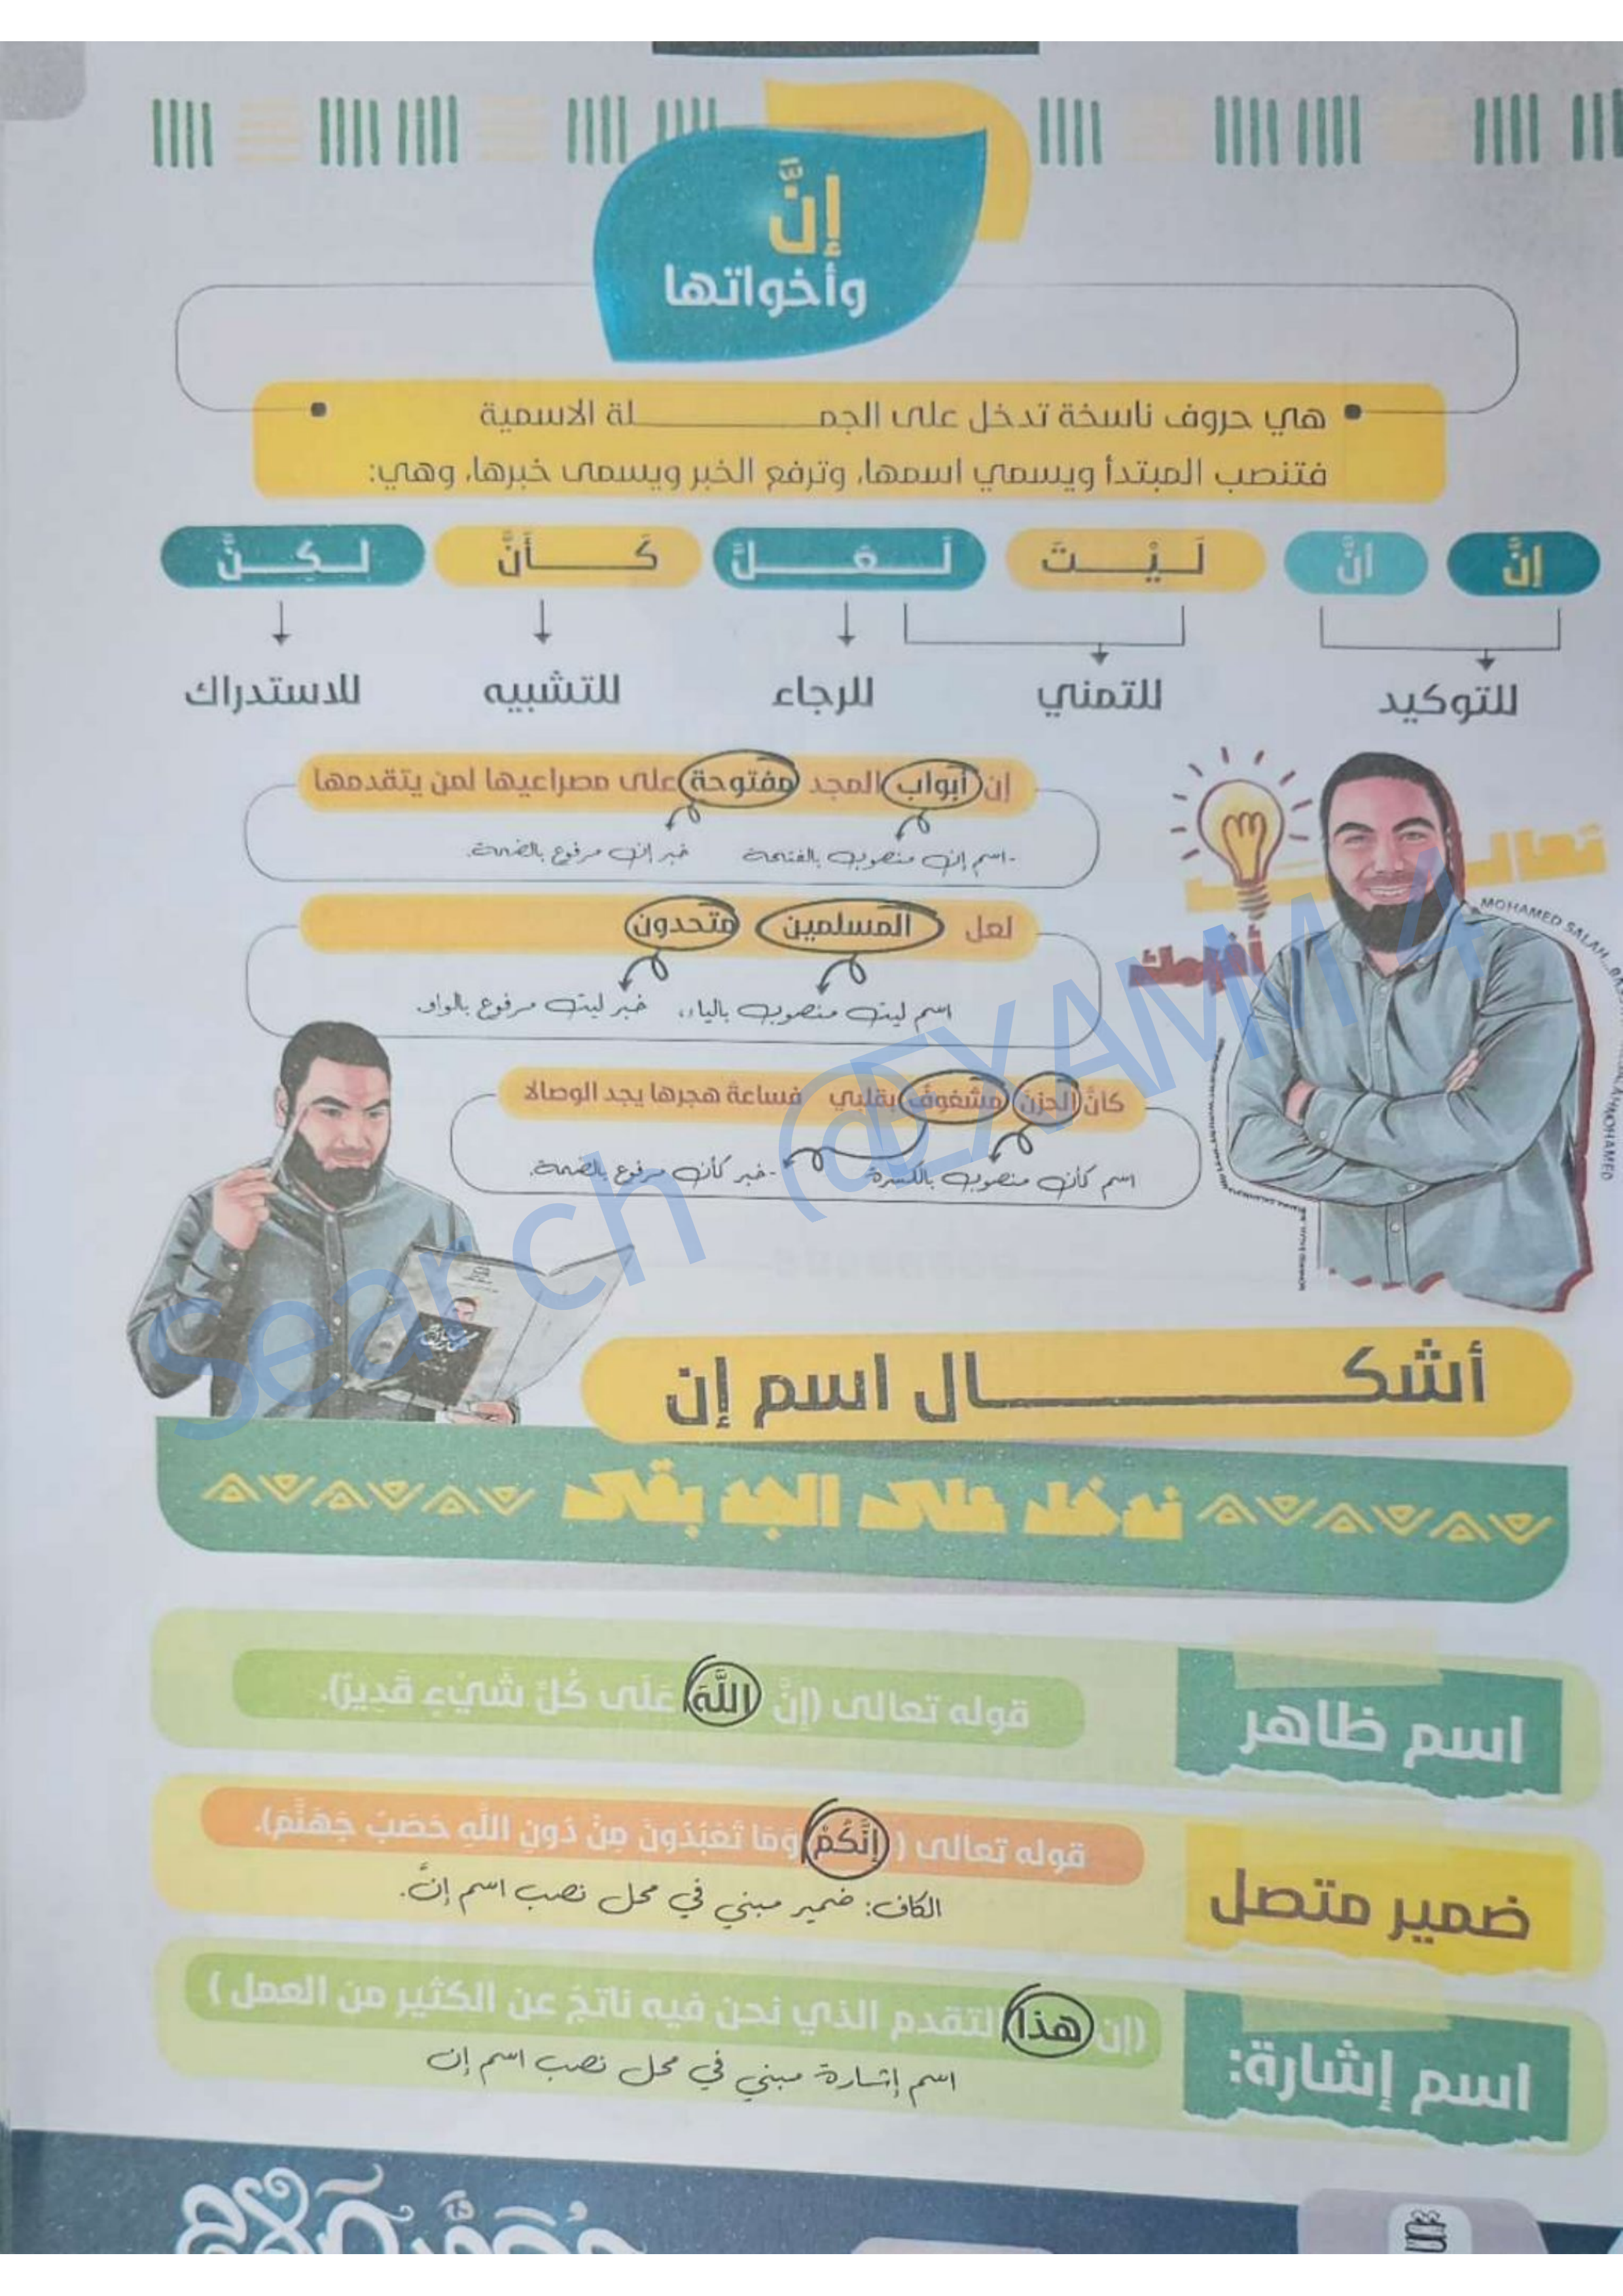 إنَّ
وأخواتها
هي حروف ناسخة تدخل على الجمـــــلة الاسمية
فتنصب المبتدأ ويسمي اسمها، وترفع الخبر ويسمى خبرها، وهي:
إنَّ أنَّ لَـيْـتَ لَـعَـلَّ كَـأَنَّ لَـكِـنَّ
للتوكيد للتمني للرجاء للتشبيه للاستدراك
تعالــى
أفهمك
MOHAMED SALAH
MOHAMED
إن أبواب المجد مفتوحة على مصراعيها لمن يتقدمها
-اسم إن منصوب بالفتحة خبر إن مرفوع بالضمة.
لعل المسلمين متحدون
اسم ليت منصوب بالياء، خبر ليت مرفوع بالواو.
كأنَّ الحزن مشغوفٌ بقلبي فساعة هجرها يجد الوصالا
اسم كأن منصوب بالكسرة -خبر كأن مرفوع بالضمة.
search @EXAMM 4
أشكـــــال اسم إن
ندخل على الجد بقى
اسم ظاهر
قوله تعالى (إنَّ اللَّهَ عَلَى كُلِّ شَيْءٍ قَدِيرٌ).
ضمير متصل
قوله تعالى ( إِنَّكُمْ وَمَا تَعْبُدُونَ مِنْ دُونِ اللَّهِ حَصَبُ جَهَنَّمَ).
الكاف: ضمير مبني في محل نصب اسم إنَّ.
اسم إشارة:
(إن هذا التقدم الذي نحن فيه ناتجٌ عن الكثير من العمل )
اسم إشارة مبني في محل نصب اسم إن